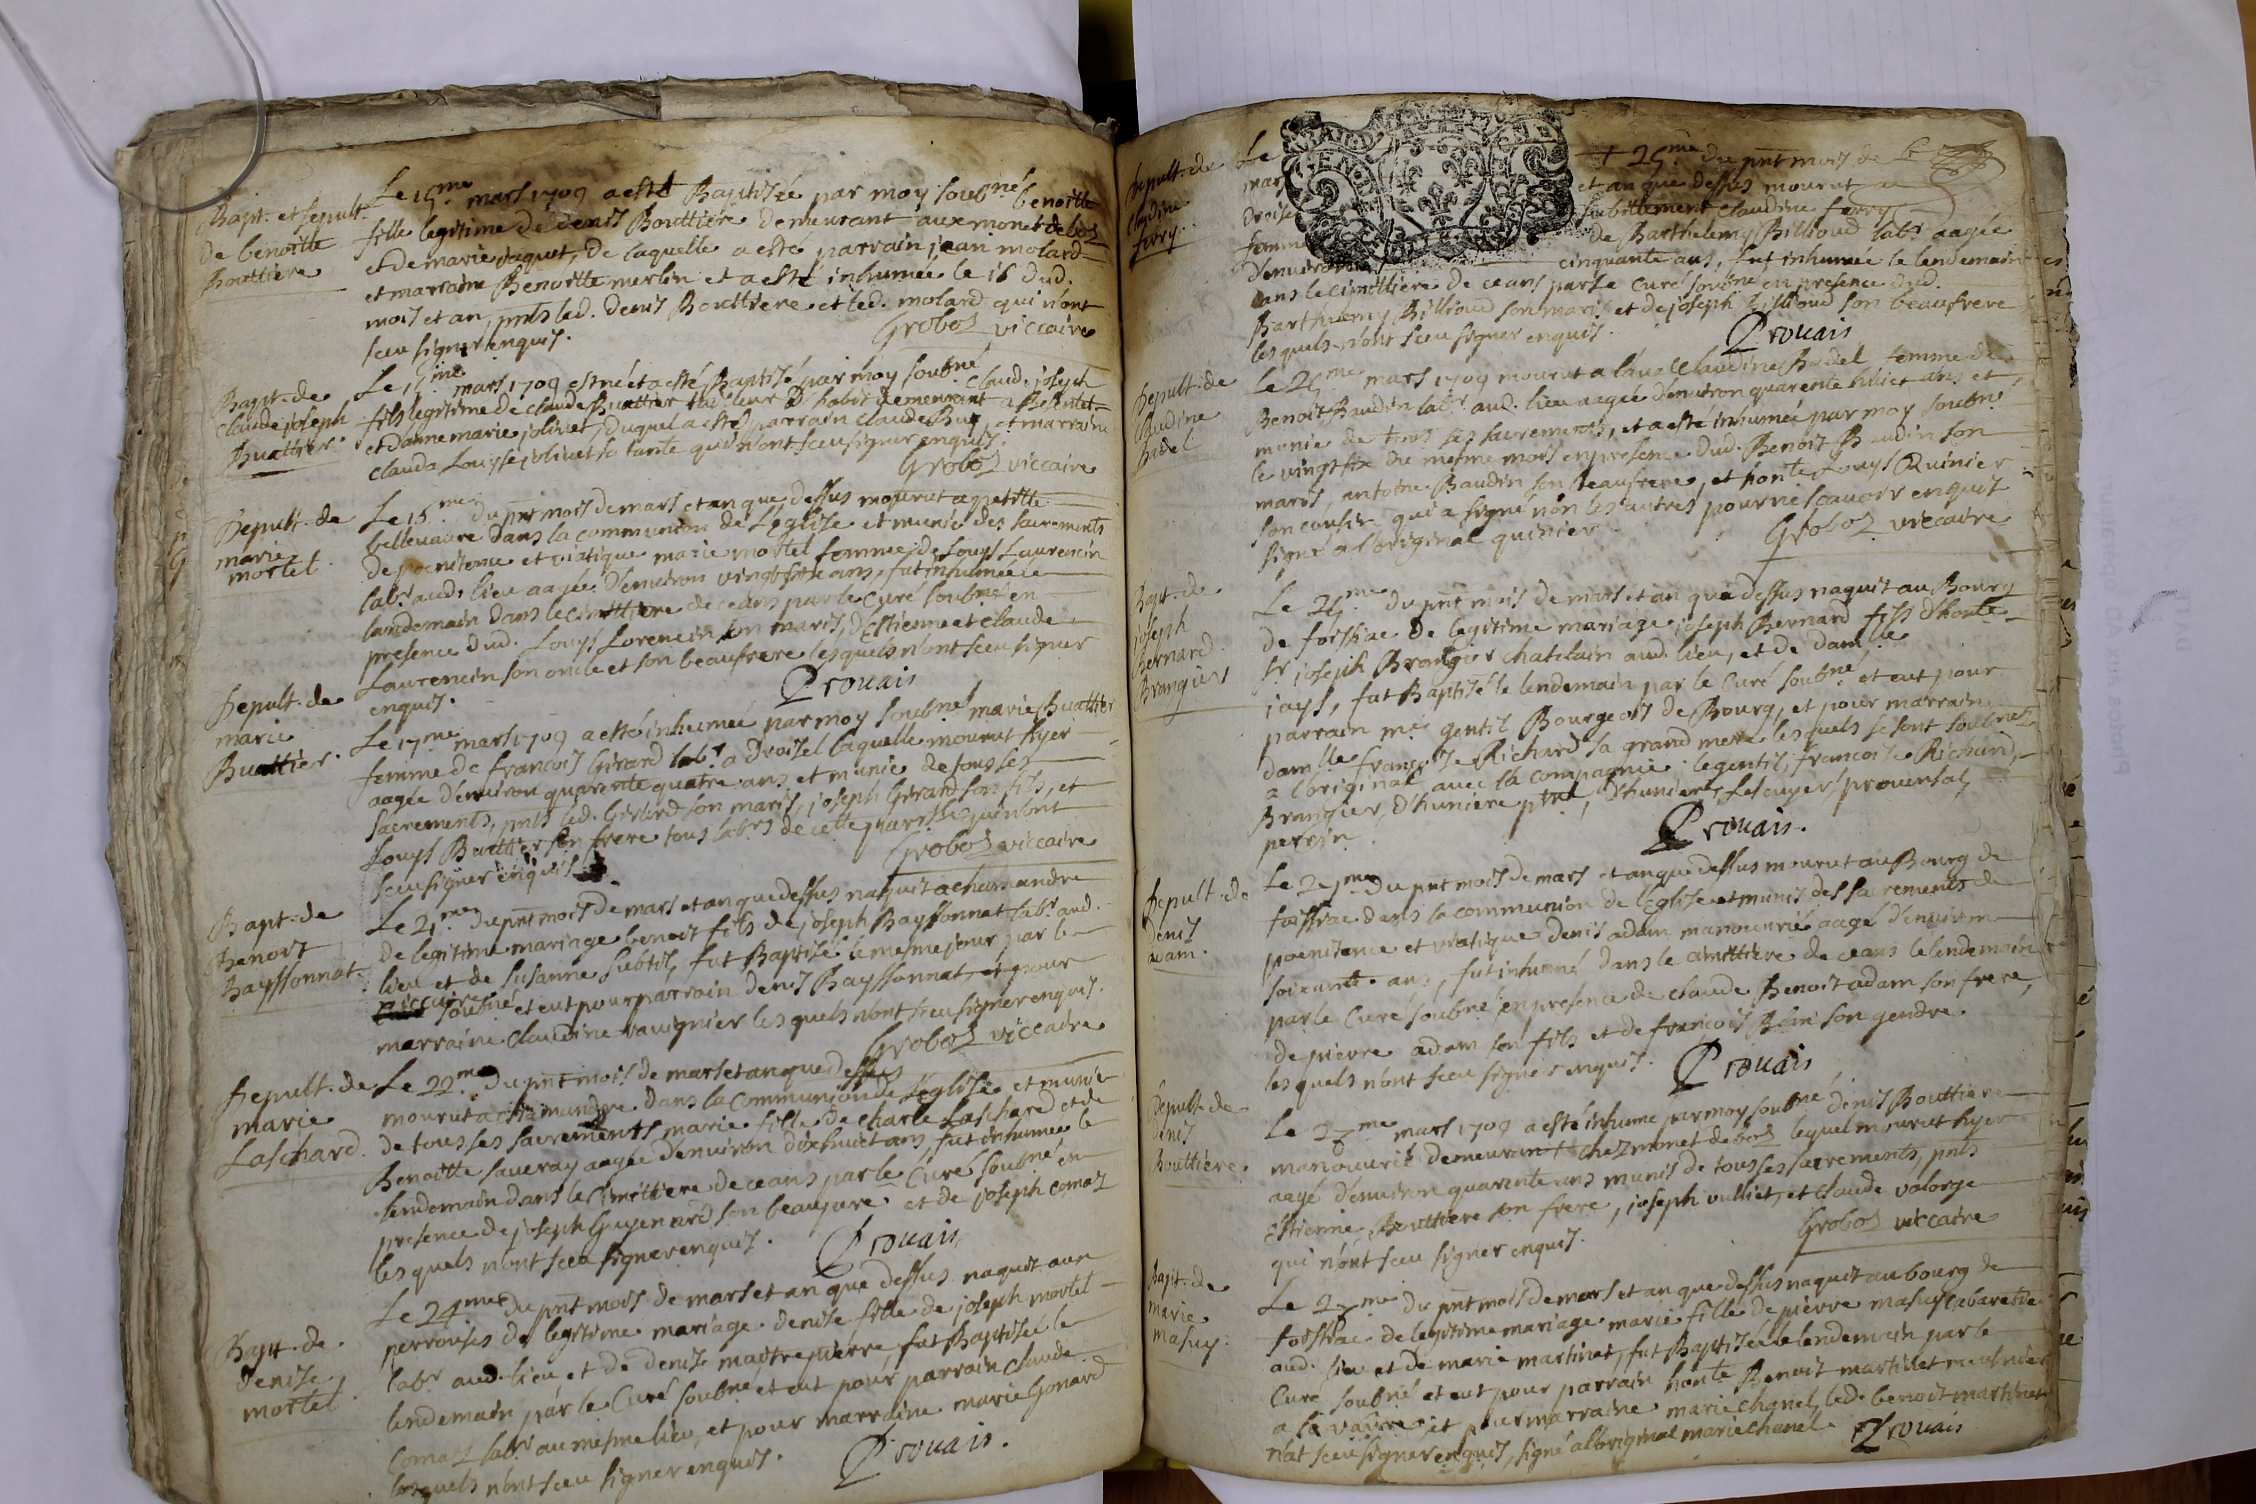 Bapt. et sepult.
de benoitte
Bouttiere
Le 15me mars 1709 a esté Baptisée par moy soubné benoitte
fille legitime de denis Bouttiere demeurant aux monet de boz
et de marie jaquet, de laquelle a esté parrain jean molard
et marraine Benoitte merlin et a esté inhumée le 16 dud.
mois et an, pnts led. denis Bouttiere et led. molard qui n'ont
sceu signer enquis.
Groboz viccaire
Bapt. de
claude joseph
Buattier
Le 15me mars 1709 est né et a esté Baptisé par moy soubné claude joseph
fils legitime de claude Buattier tailleur d'habit demeurant a
et d'anne marie jolivet, duquel a esté parrain claude et marraine
clauda Louyse jolivet sa tante qui n'ont sceu signer enquis.
Groboz viccaire
Sepult. de
marie
mortel
Le 15me du pnt mois de mars et an que dessus mourut a petitte
bellevavre dans la communion de L'eglise et munie des sacrements
de poenitence et viatique marie mortel femme de Louys Laurencin
labr aud. lieu aagée d'environ vingt six ans, fut inhumée le
landemain dans le cimettiere de ceans par le Curé soubné en
presence dud. Louys Lorencin son maris, d'Estienne et claude
Laurencin son oncle et son beaufrere lesquels n'ont sceu signer
enquis.
Prouais
Sepult. de
marie
Buattier.
Le 17me mars 1709 a esté inhumée par moy soubné marie Buattier
femme de francois Girard labr a Droisel laquelle mourut hyer
aagée d'environ quarente quatre ans et munie de tous les
sacrements, pnts led. Girard son maris, joseph Girard son fils, et
Louys Buattier son frere tous labrs de cette parroisse qui n'ont
sceu signer enquis
Groboz viccaire
Bapt. de
Benoit
Bayssonnat.
Le 21me du pnt mois de mars et an que dessus naquit a chamandre
de legitime mariage benoit fils de joseph Bayssonnat labr aud.
lieu et de susanne subtil, fut Baptisé le mesme jour par le
viccaire soubné et eut pour parrain denis Bayssonnat, et pour
marraine claudine vavignier lesquels n'ont sceu signer enquis.
Groboz viccaire
Sepult. de
marie
Laschard.
Le 22me du pnt mois de mars et an que dessus
mourut a chamandre dans la communion de L'eglise et munie
de tous ses sacrements marie fille de charle Laschard et de
Benoitte saveray aagée d'environ dix huict ans fut inhumée le
lendemain dans le Cimettiere de ceans par le Curé soubné en
presence de joseph Guyenard son beaupere et de joseph comaz
lesquels n'ont sceu signer enquis.
Prouais
Bapt. de
denise
mortel
Le 24me du pnt mois de mars et an que dessus naquit aux
perrouses de legitime mariage denise fille de joseph mortel
labr aud. lieu et de denise maitrepierre, fut Baptisée le
lendemain par le Curé soubné et eut pour parrain claude
Comaz labr au mesme lieu, et pour marraine marie Gonard
lesquels n'ont sceu signer enquis.
Prouais.
Sepult. de
claudine
ferry.
Le 25me du pnt mois de
mars et an que dessus mourut a
Droise subittement claudine ferry
femme de Barthelemy Billioud labr aagée
d'environ cinquante ans, fut inhumée le lendemain
dans le cimettiere de ceans par le Curé soubné en presence dud.
Barthelemy Billioud son maris et de joseph Billioud son beaufrere
lesquels n'ont sceu signer enquis.
Prouais
Sepult. de
claudine
Badel
Le 25me mars 1709 mourut a lavavre claudine Badel femme de
Benoit Baudin labr aud. lieu aagée d'environ quarente huict ans et
munie de tous ses sacrements, et a esté inhumée par moy soubné
le vingt six du mesme mois en presence dud. Benoit Baudin son
maris, antoine Baudin son beaufrere, et honte Louys Quinier
son cousin qui a signé non les autres pour ne scavoir enquis
signé a l'original quinier
Groboz viccaire
Bapt. de
joseph
Bernard
Brangier
Le 26me du pnt mois de mars et an que dessus naquit au Bourg
de foissiac de legitime mariage joseph Bernard fils d'honte
Sr joseph Brangier chatelain aud. lieu, et de damlle
jays, fut Baptisé le lendemain par le Curé soubné et eut pour
parrain mr gentil Bourgeois de Bourg, et pour marraine
damlle françoise Richard sa grand mere lesquels se sont soubnez
a l'original avec la compagnie. legentil, francoise Richard,
Brangier, d'huniere ptre, d'huniere, Lescuyer, provensal,
perrin.
Prouais.
Sepult. de
denis
adam.
Le 27me du pnt mois de mars et an que dessus mourut au Bourg de
foissiac dans la communion de L'eglise et munis des sacrements de
poenitence et viatique denis adam manouvrié aagé d'environ
soixante ans, fut inhumé dans le cimettiere de ceans le lendemain
par le Curé soubné en presence de claude Benoit adam son frere,
de pierre adam son fils et de francois son gendre.
lesquels n'ont sceu signer enquis.
Prouais
Sepult. de
denis
Bouttiere.
Le 27me mars 1709 a esté inhumé par moy soubné denis Bouttiere
manouvrié demeurant chez monet de boz lequel mourut hyer
aagé d'environ quarente ans munis de tous ses sacrements, pnts
Estienne Bouttiere son frere, joseph vulliet, et claude valorge
qui n'ont sceu signer enquis.
Groboz viccaire
Bapt. de
marie
masuy.
Le 27me du pnt mois de mars et an que dessus naquit au bourg de
foissiac de legitime mariage marie fille de pierre masuy cabaretie
aud. lieu et de marie martinet, fut Baptisée le lendemain par le
Curé soubné et eut pour parrain honte Benoit martinet meusnier
a la vavre et pour marraine marie chanel, led. benoit martinet
n'at sceu signer enquis, signé a l'original marie chanel
Prouais